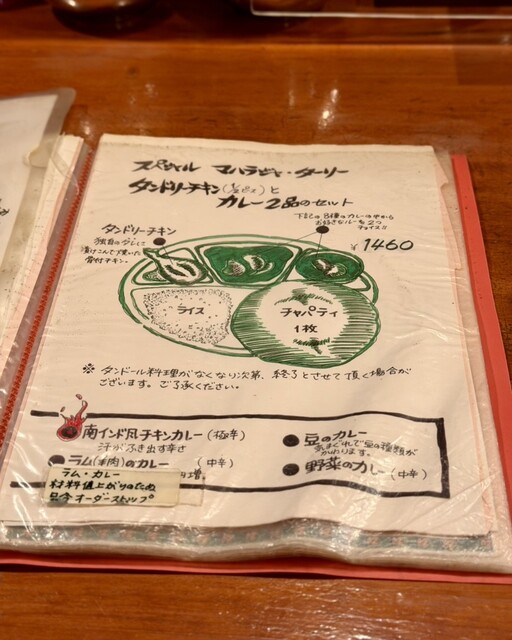 スペシャル マハラジャ・ターリー
タンドリーチキン(½ピース)と
カレー2品のセット
下記の8種のカレーの中から
お好きなルーを2つ
チョイス!!
¥1460
タンドリーチキン
独自のダレに
漬けこんで焼いた
骨付チキン。
ライス
チャパティ
1枚
※ タンドール料理がなくなり次第、終了とさせて頂く場合が
ございます。ご了承ください。
南インド風チキンカレー(極辛)
汗がふき出す辛さ
ラム(羊肉)のカレー (中辛)
増。
ラム・カレー
材料値上がりのため
只今オーダーストップ
豆のカレー
気まぐれで豆の種類が
かわります。
野菜のカレー(中辛)